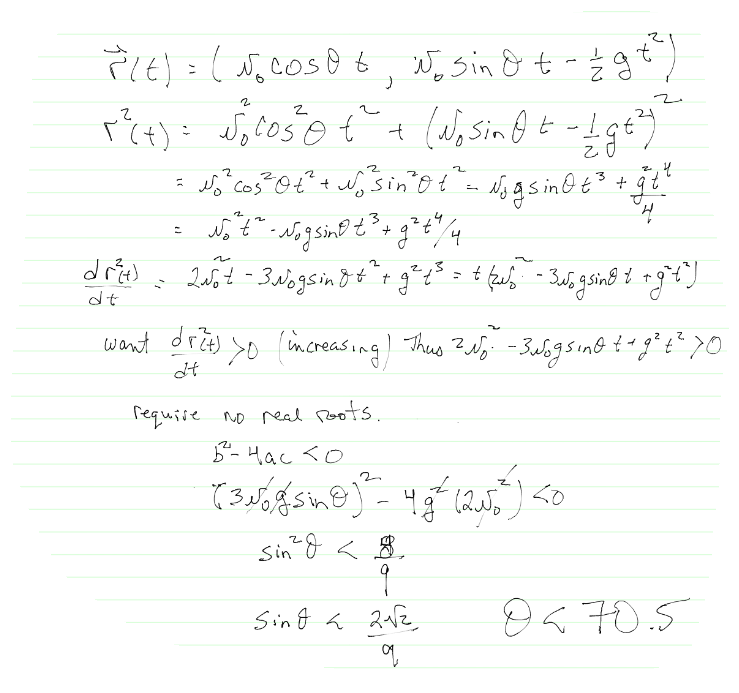 r⃗(t) = (v₀cosθ t, v₀ sinθ t - ½gt²)
r²(t) = v₀²cos²θ t² + (v₀sinθ t - ½gt²)²
= v₀²cos²θt² + v₀²sin²θt² - v₀gsinθt³ + g²t⁴/4
= v₀²t² - v₀gsinθt³ + g²t⁴/4
dr²(t)/dt = 2v₀²t - 3v₀gsinθt² + g²t³ = t(2v₀² - 3v₀gsinθt + g²t²)
want dr²(t)/dt >0 (increasing) Thus 2v₀² - 3v₀gsinθt + g²t² >0
require no real roots.
b² - 4ac <0
(3v₀gsinθ)² - 4g²(2v₀²) <0
sin²θ < 8/9
sinθ < 2√2/9 θ < 70.5